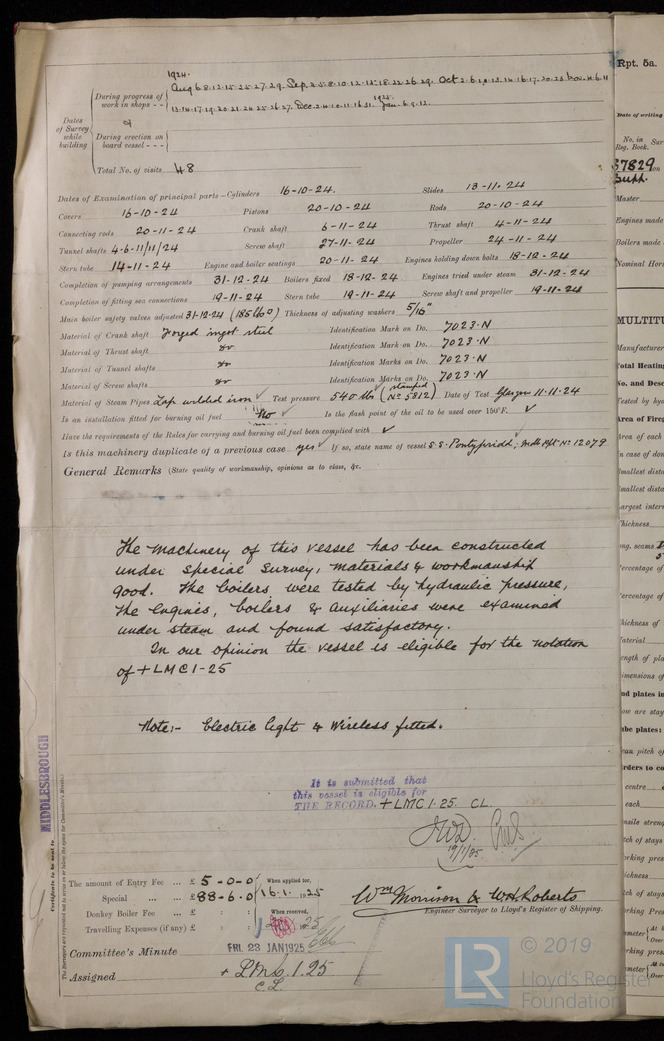 1924.
During progress of work in shops - - Aug 6.8.12.15.25.27.29. Sep 2.5.8.10.12.15.18.22.26.29. Oct
1925
13.14.17.19.20.21.24.25.26.27. Dec 2.4.10.11.16.31. Jan. 6.9.12.
Dates of Survey while building
During erection on board vessel - - -
Total No. of visits 48
Dates of Examination of principal parts—Cylinders 16-10-24. Slides 13-11-24
Covers 16-10-24 Pistons 20-10-24 Rods 20-10-24
Connecting rods 20-11-24 Crank shaft 6-11-24 Thrust shaft 4-11-24
Tunnel shafts 4-6-11/11/24 Screw shaft 27-11-24 Propeller 24-11-24
Stern tube 14-11-24 Engine and boiler seatings 20-11-24 Engines holding down bolts 18-12-24
Completion of pumping arrangements 31-12-24 Boilers fixed 18-12-24 Engines tried under steam 31-12-24
Completion of fitting sea connections 19-11-24 Stern tube 19-11-24 Screw shaft and propeller 19-11-24
Main boiler safety valves adjusted 31-12-24 (185 lbs) Thickness of adjusting washers 5/16"
Material of Crank shaft Forged ingot steel Identification Mark on Do. 7023.N
Material of Thrust shaft do Identification Mark on Do. 7023.N
Material of Tunnel shafts do Identification Marks on Do. 7023.N
Material of Screw shafts do Identification Marks on Do. 7023.N
Material of Steam Pipes Lap welded iron ✓ Test pressure 540 lbs (stamped No 5812) Date of Test Glasgow 11-11-24
Is an installation fitted for burning oil fuel No ✓ Is the flash point of the oil to be used over 150°F. ✓
Have the requirements of the Rules for carrying and burning oil fuel been complied with ✓
Is this machinery duplicate of a previous case yes ✓ If so, state name of vessel S.S. Pontypridd; Mdb Rpt No 12079
General Remarks (State quality of workmanship, opinions as to class, &c.
The machinery of this vessel has been constructed
under special survey, materials & workmanship
good. The boilers were tested by hydraulic pressure,
the engines, boilers & auxiliaries were examined
under steam and found satisfactory.
In our opinion the vessel is eligible for the notation
of + LMC 1-25
Note:- Electric light & Wireless fitted.
It is submitted that
this vessel is eligible for
THE RECORD. + LMC 1.25. CL.
MIDDLESBROUGH
Certificate to be sent to
The amount of Entry Fee ... £ 5-0-0 When applied for,
Special ... £ 88-6-0 16.1. 1925
Donkey Boiler Fee ... £ : : When received,
Travelling Expenses (if any) £ : :
Wm Morrison & W.H. Roberts
Engineer Surveyor to Lloyd's Register of Shipping.
Committee's Minute FRI. 23 JAN 1925
Assigned + LMC. 1.25
C.L.
Rpt. 5a.
Date of writing
No. in Reg. Book.
37829
Supp.
Master
Engines made
Boilers made
Nominal Hor
MULTITU
Manufacturer
Total Heating
No. and Desc
Tested by hy
Area of Fireg
Area of each
In case of don
Smallest dista
Smallest dista
Largest inter
Thickness
© 2019
Lloyd's Register
Foundation
LR